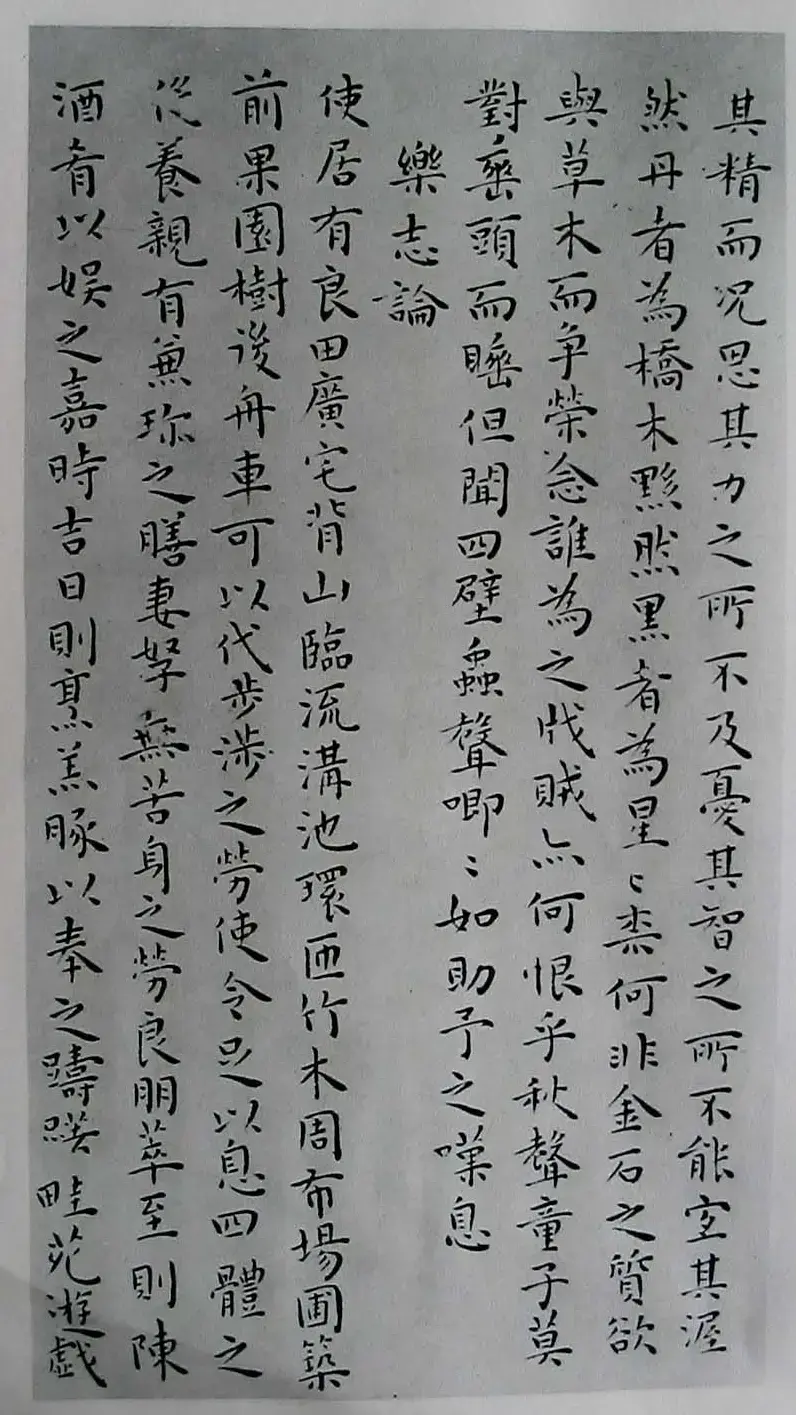 其精而况思其力之所不及憂其智之所不能宜其渥
然丹者為橋木黟然黒者為星〻柰何非金石之質欲
與草木而争榮念誰為之戕賊亦何恨乎秋聲童子莫
對垂頭而睡但聞四壁蟲聲唧〻如助予之嘆息
樂志論
使居有良田廣宅背山臨流溝池環匝竹木周布場圃築
前果園樹後舟車可以代步涉之勞使令足以息四體之
役養親有兼珎之膳妻孥無苦身之勞良朋萃至則陳
酒肴以娱之嘉時吉日則烹羔豚以奉之躊躇畦苑遊戯